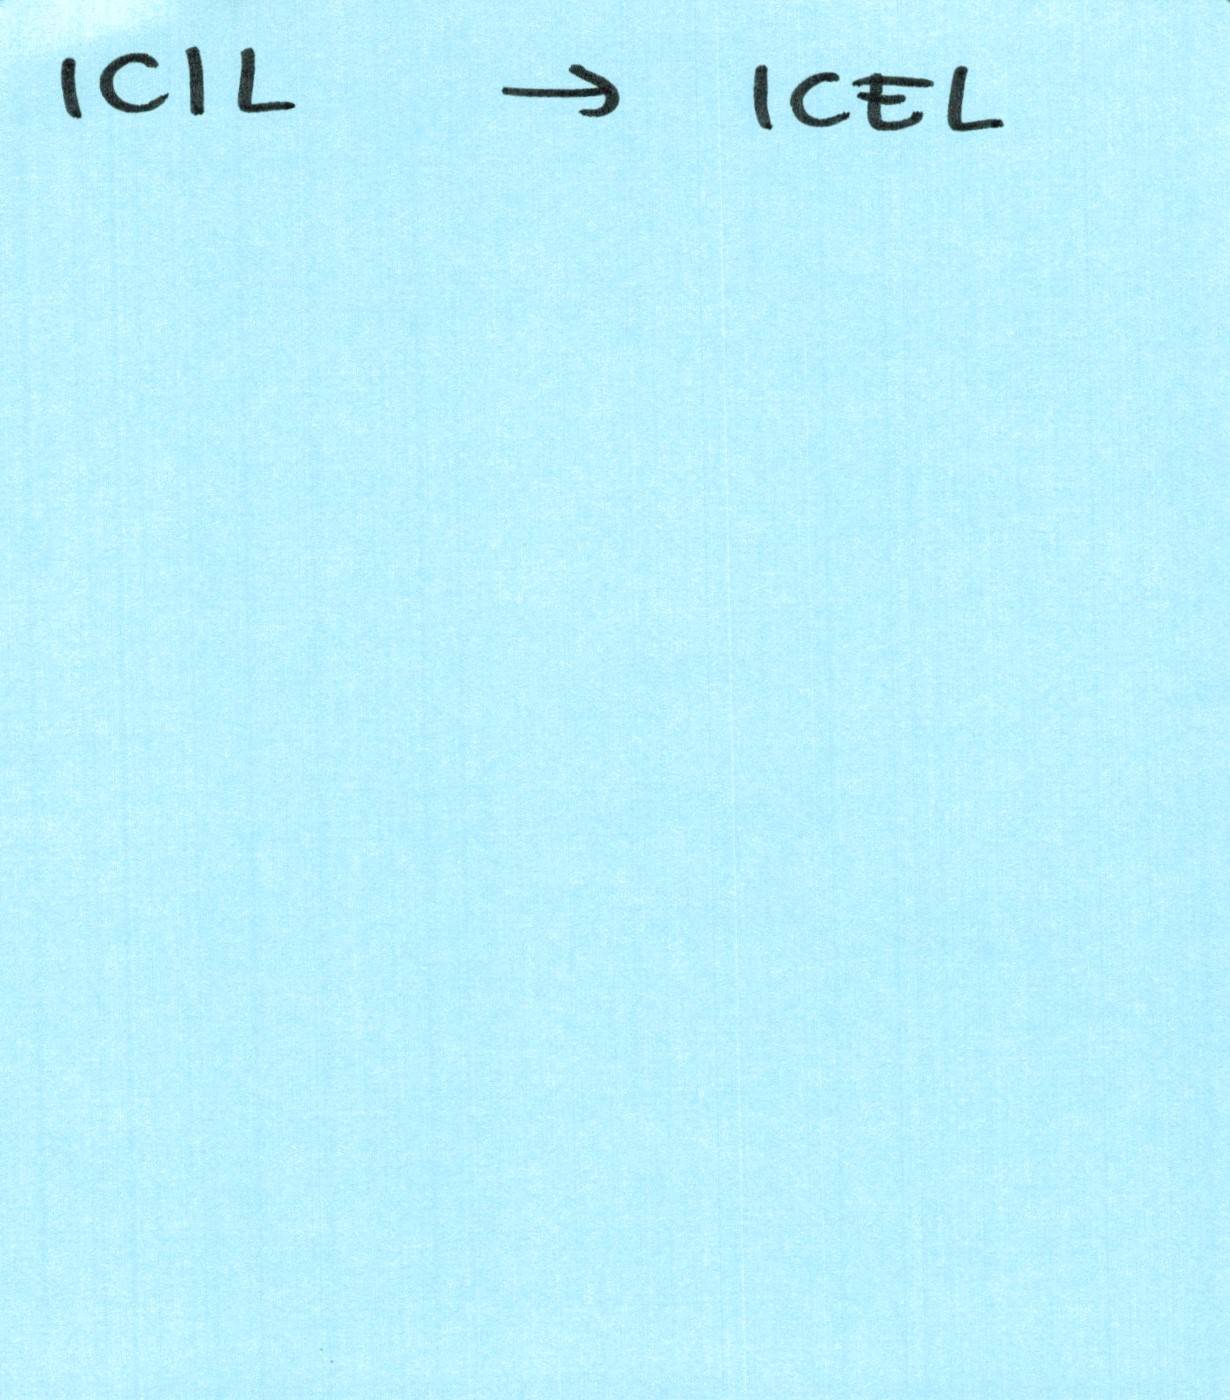 ICIL → ICEL